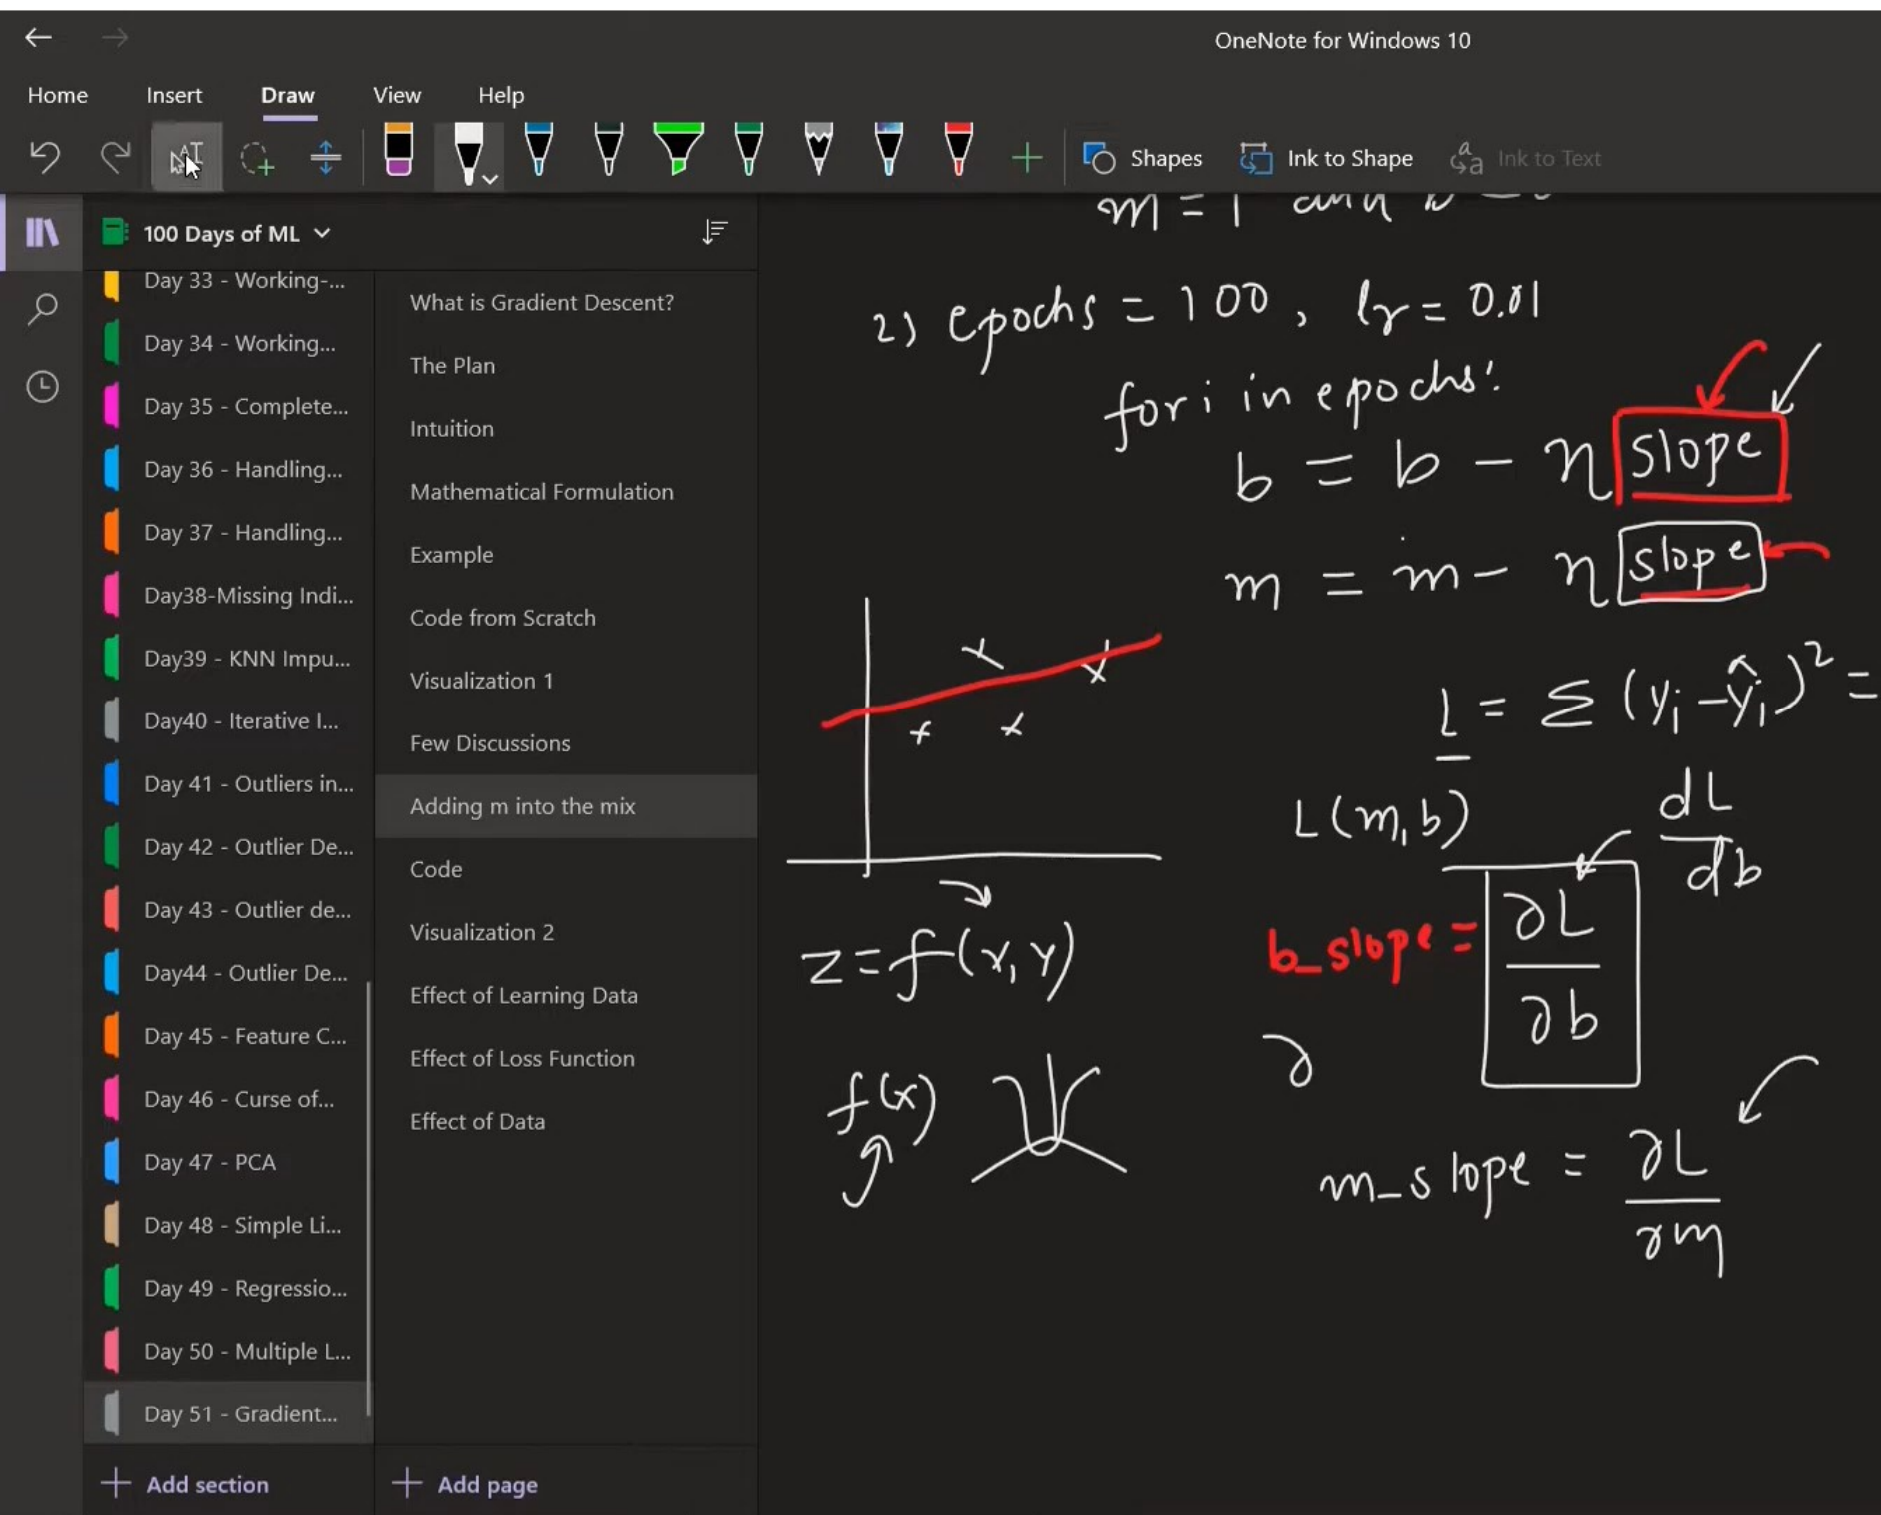 OneNote for Windows 10
Home Insert Draw View Help
Shapes Ink to Shape Ink to Text
100 Days of ML
Day 33 - Working-...
Day 34 - Working...
Day 35 - Complete...
Day 36 - Handling...
Day 37 - Handling...
Day38-Missing Indi...
Day39 - KNN Impu...
Day40 - Iterative I...
Day 41 - Outliers in...
Day 42 - Outlier De...
Day 43 - Outlier de...
Day44 - Outlier De...
Day 45 - Feature C...
Day 46 - Curse of...
Day 47 - PCA
Day 48 - Simple Li...
Day 49 - Regressio...
Day 50 - Multiple L...
Day 51 - Gradient...
Add section
What is Gradient Descent?
The Plan
Intuition
Mathematical Formulation
Example
Code from Scratch
Visualization 1
Few Discussions
Adding m into the mix
Code
Visualization 2
Effect of Learning Data
Effect of Loss Function
Effect of Data
Add page
m = 1 and b = 0
2) epochs = 100, lr = 0.01
for i in epochs:
b = b - η slope
m = m - η slope
L = Σ (yi - ŷi)² =
L(m, b)
dL
db
b_slope = ∂L
∂b
∂
m_slope = ∂L
∂m
z = f(x, y)
f(x)